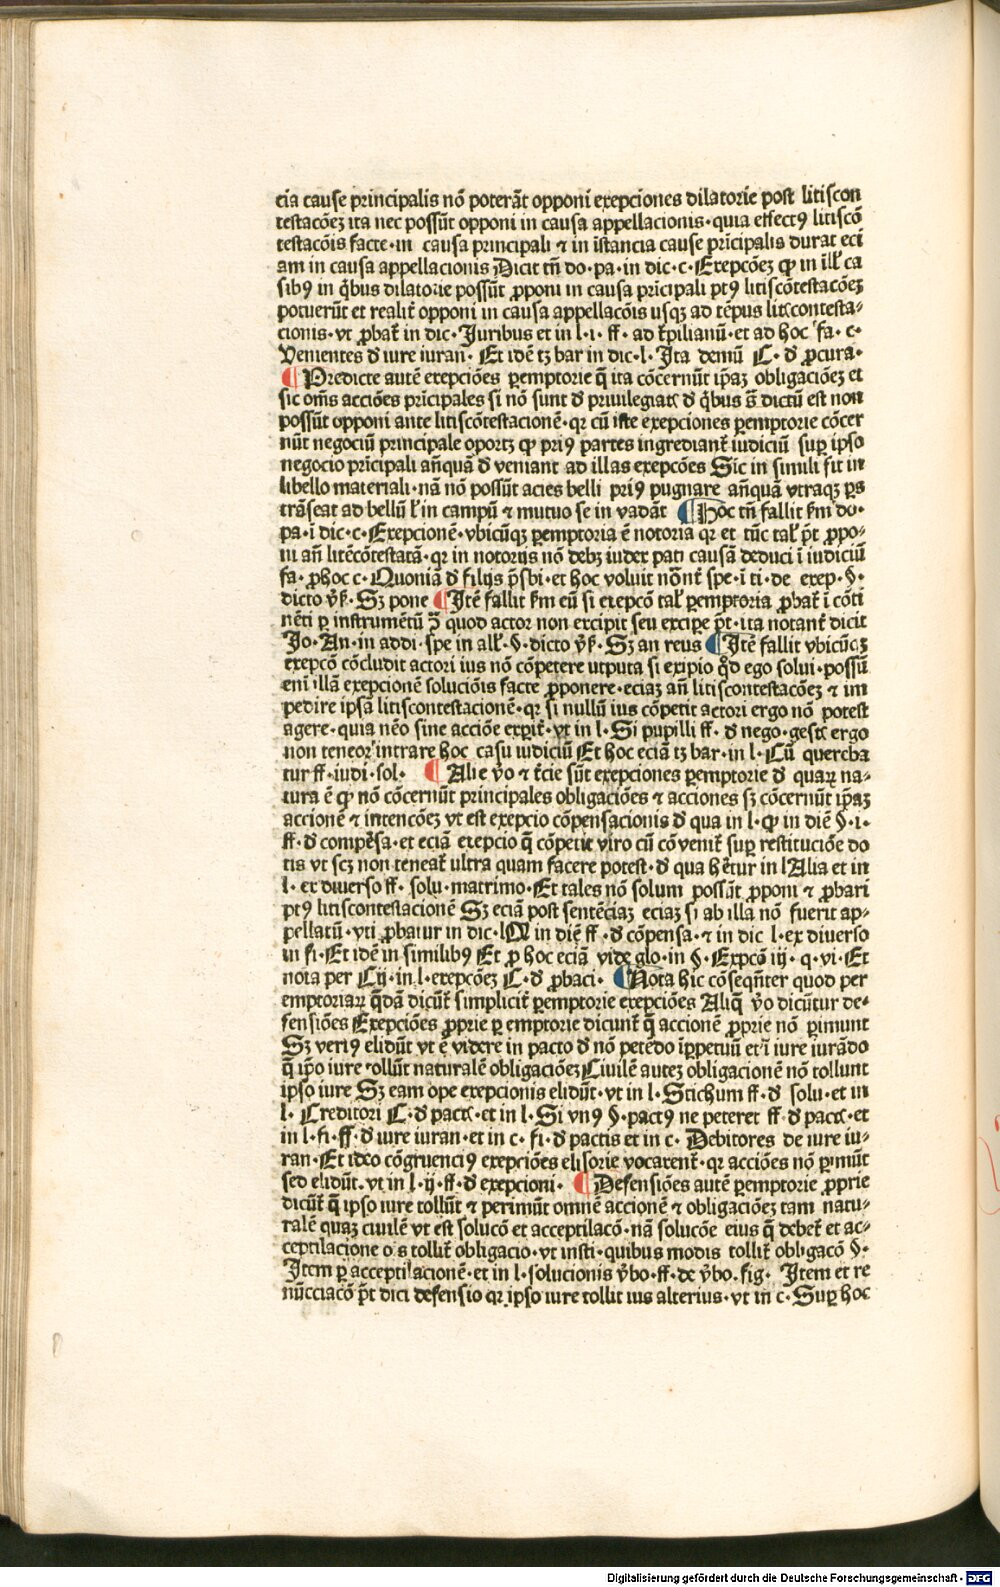 cia cause principalis nõ poterãt opponi exepciones dilatorie post litiscon
testacõeꝫ ita nec possũt opponi in causa appellacionis·quia effectꝰ litiscõ
testacõis facte·in causa principali ⁊ in ĩstancia cause prĩcipalis durat eci
am in causa appellacionis Dicit tñ do·pa·in dic·c·Exepcõeꝫ ꝙ in ill̃ ca
sibꝰ in q̃bus dilatorie possũt ꝓponi in causa prĩcipali ptꝰ litiscõtestacõeꝫ
potuerũt et realit̃ opponi in causa appellacõis usqꝫ ad tẽpus litꝭcontesta-
cionis·vt ꝓbat̃ in dic·Juribus et in l·i·ff·ad t̃pilianũ·et ad hoc fa·c·
Venientes đ iure iuran·Et idẽ tꝫ bar in dic·l·Ita demũ C·đ ꝓcura·
¶Predicte autẽ exepciões ꝑemptorie q̃ ita cõcernũt ip̃aꝫ obligaciõeꝫ et
sic om̃s acciões prĩcipales si nõ sunt đ priuilegiatꝭ đ q̃bus s̃ dictũ est non
possũt opponi ante litiscõtestacionẽ·qꝛ cũ iste exepciones ꝑemptorie cõcer
nũt negociũ principale oportꝫ ꝙ priꝰ partes ingrediant̃ iudiciũ suꝑ ipso
negocio prĩcipali añquã đ veniant ad illas exepcões Sic in simili fit in
libello materiali·nã nõ possũt acies belli priꝰ pugnare añquã vtraqꝫ ꝑs
trãseat ad bellũ l̃ in campũ ⁊ mutuo se in vadãt ¶Hoc tñ fallit ẜm do·
pa·i dic·c·Exepcionẽ·vbicũqꝫ ꝑemptoria ẽ notoria qꝛ et tũc tal̃ p̃t ꝓpo-
ni añ litẽcõtestatã·qꝛ in notorijs nõ debꝫ iudex pati causã deduci ĩ iudiciũ
fa·ꝓhoc c·Quoniã đ filijs p̃sbi·et hoc voluit nõnt̃ spe·ĩ ti·de exep·§·
dicto v̉ẜ·Sꝫ pone ¶Itẽ fallit ẜm eũ si exepcõ tal̃ ꝑemptoria ꝓbat̃ ĩ cõti
nẽti ꝑ instrumẽtũ quod actor non excipit seu excipe p̃t·ita notant̃ dicit
Jo·An·in addi·spe in all̃·§·dicto v̉ẜ·Sꝫ an reus ¶Itẽ fallit vbicũqꝫ
exepcõ cõcludit actori ius nõ cõpetere utputa si exipio q̃đ ego solui·possũ
enĩ illã exepcionẽ soluciõis facte ꝓponere·eciaꝫ añ litiscontestacõeꝫ ⁊ im
pedire ipsã litiscontestacionẽ·qꝛ si nullũ ius cõpetit actori ergo nõ potest
agere·quia nẽo sine acciõe experit̃·vt in l·Si pupilli ff·đ nego·gestꝭ ergo
non teneor intrare hoc casu iudiciũ Et hoc eciã tꝫ bar·in l·Cũ querebа
tur ff·iudi·sol· ¶Alie v̉o ⁊ t̃cie sũt exepciones ꝑemptorie đ quaꝝ na-
tura ẽ ꝙ nõ cõcernũt principales obligaciões ⁊ acciones sꝫ cõcernũt ip̃aꝫ
accionẽ ⁊ intencõeꝫ vt est exepcio cõpensacionis đ qua in l·ꝙ in diẽ §·i·
ff·đ compẽsa·et eciã exepcio q̃ cõpetit viro cũ cõvenit̃ suꝑ restituciõe do
tis vt scꝫ non teneat̃ ultra quam facere potest·đ qua hẽtur in lAlia et in
l·ex diuerso ff·solu·matrimo·Et tales nõ solum possũt ꝓponi ⁊ ꝓbari
ptꝰ litiscontestacionẽ Sꝫ eciã post sentẽciaꝫ eciaꝫ si ab illa nõ fuerit ap-
pellatũ·vti ꝓbatur in dic·lQ in diẽ ff·đ cõpensa·⁊ in dic l·ex diuerso
in fi·Et idẽ in similibꝰ Et ꝓ hoc eciã vide glo·in §·Expcõ iij·q·vi·Et
nota per Cij·in·l·exepcõeꝫ C·đ ꝓbaci· ¶Nota hic cõseqñter quod per
emptoriaꝝ q̃dã dicũt̃ simplicit̃ ꝑemptorie exepciões Aliq̃ v̉o dicũtur de-
fensiões Exepciões ꝓprie ꝑ emptorie dicunt̃ q̃ accionẽ ꝓprie nõ ꝑimunt
Sꝫ veriꝰ elidũt vt ẽ videre in pacto đ nõ petẽdo ĩꝑpetuũ et ĩ iure iurãdo
q̃ ip̃o iure tollũt naturalẽ obligaciõeꝫ Ciuilẽ auteꝫ obligacionẽ nõ tollunt
ipso iure Sꝫ eam ope exepcionis elidũt·vt in l·Stichum ff·đ solu·et in
l·Creditori C·đ pactꝭ·et in l·Si vnꝰ §·pactꝰ ne peteret ff·đ pactꝭ·et
in l·fi·ff·đ iure iuran·et in c·fi·đ pactis et in c·Debitores de iure iu-
ran·Et ideo cõgruenciꝰ exepciões elisorie vocarent̃·qꝛ acciões nõ ꝑimũt
sed elidũt·vt in l·ij·ff·đ exepcioni· ¶Defensiões autẽ ꝑemptorie ꝓprie
dicũt̃ q̃ ipso iure tollũt ⁊ perimũt omnẽ accionẽ ⁊ obligaciõeꝫ tam natu-
ralẽ quaꝫ ciuilẽ vt est solucõ et acceptilacõ·nã solucõe eius q̃ debet̃ et ac-
ceptilacione o s tollit̃ obligacio·vt insti·quibus modis tollit̃ obligacõ §·
Item ꝑ acceptilacionẽ·et in l·solucionis v̉bo·ff·de v̉bo.sig· Item et re
nũcciacõ p̃t dici defensio qꝛ ipso iure tollit ius alterius·vt in c·Suꝑ hoc
Digitalisierung gefördert durch die Deutsche Forschungsgemeinschaft - DFG